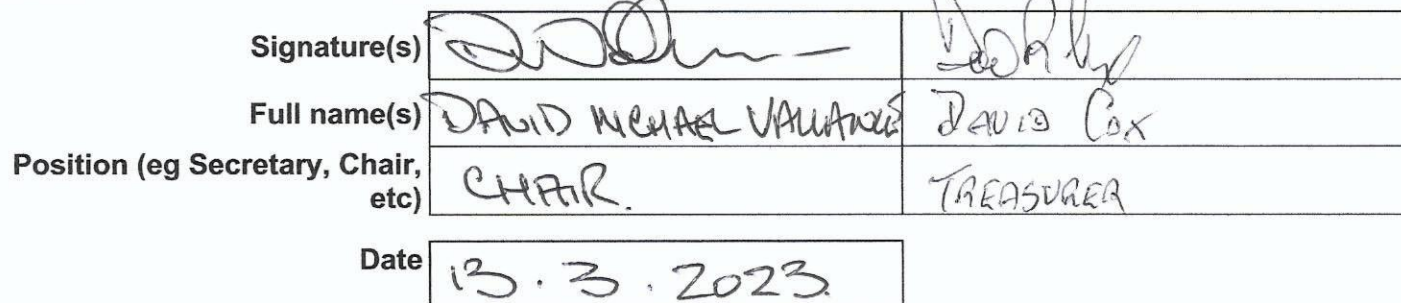 Signature(s)
Full name(s) DAVID MICHAEL DAVID COX
Position (eg Secretary, Chair,
etc) CHAIR. TREASURER
Date 13.3.2023.